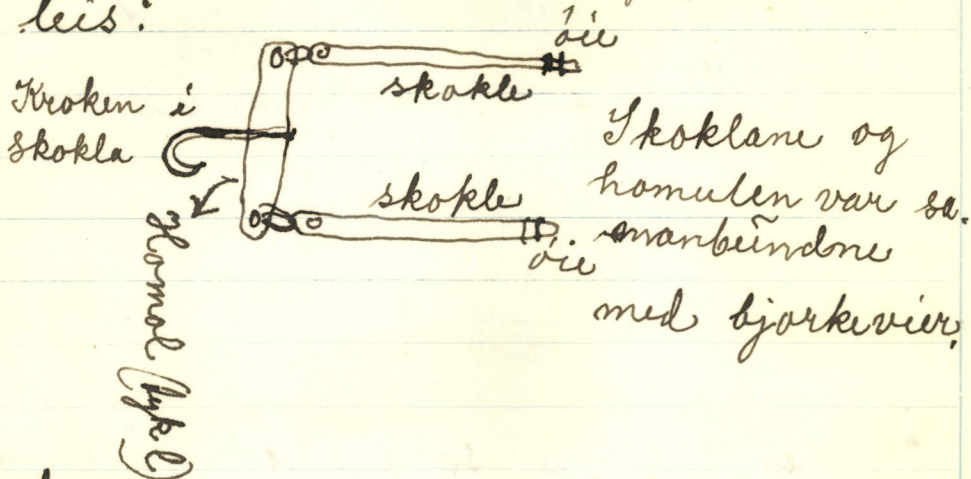 leis:
óie
skokle
Kroken i
skokla
Skoklane og
homulen var sa-
manbŭndne
med bjorkevier.
skokle
óie
Homol (tykk l)